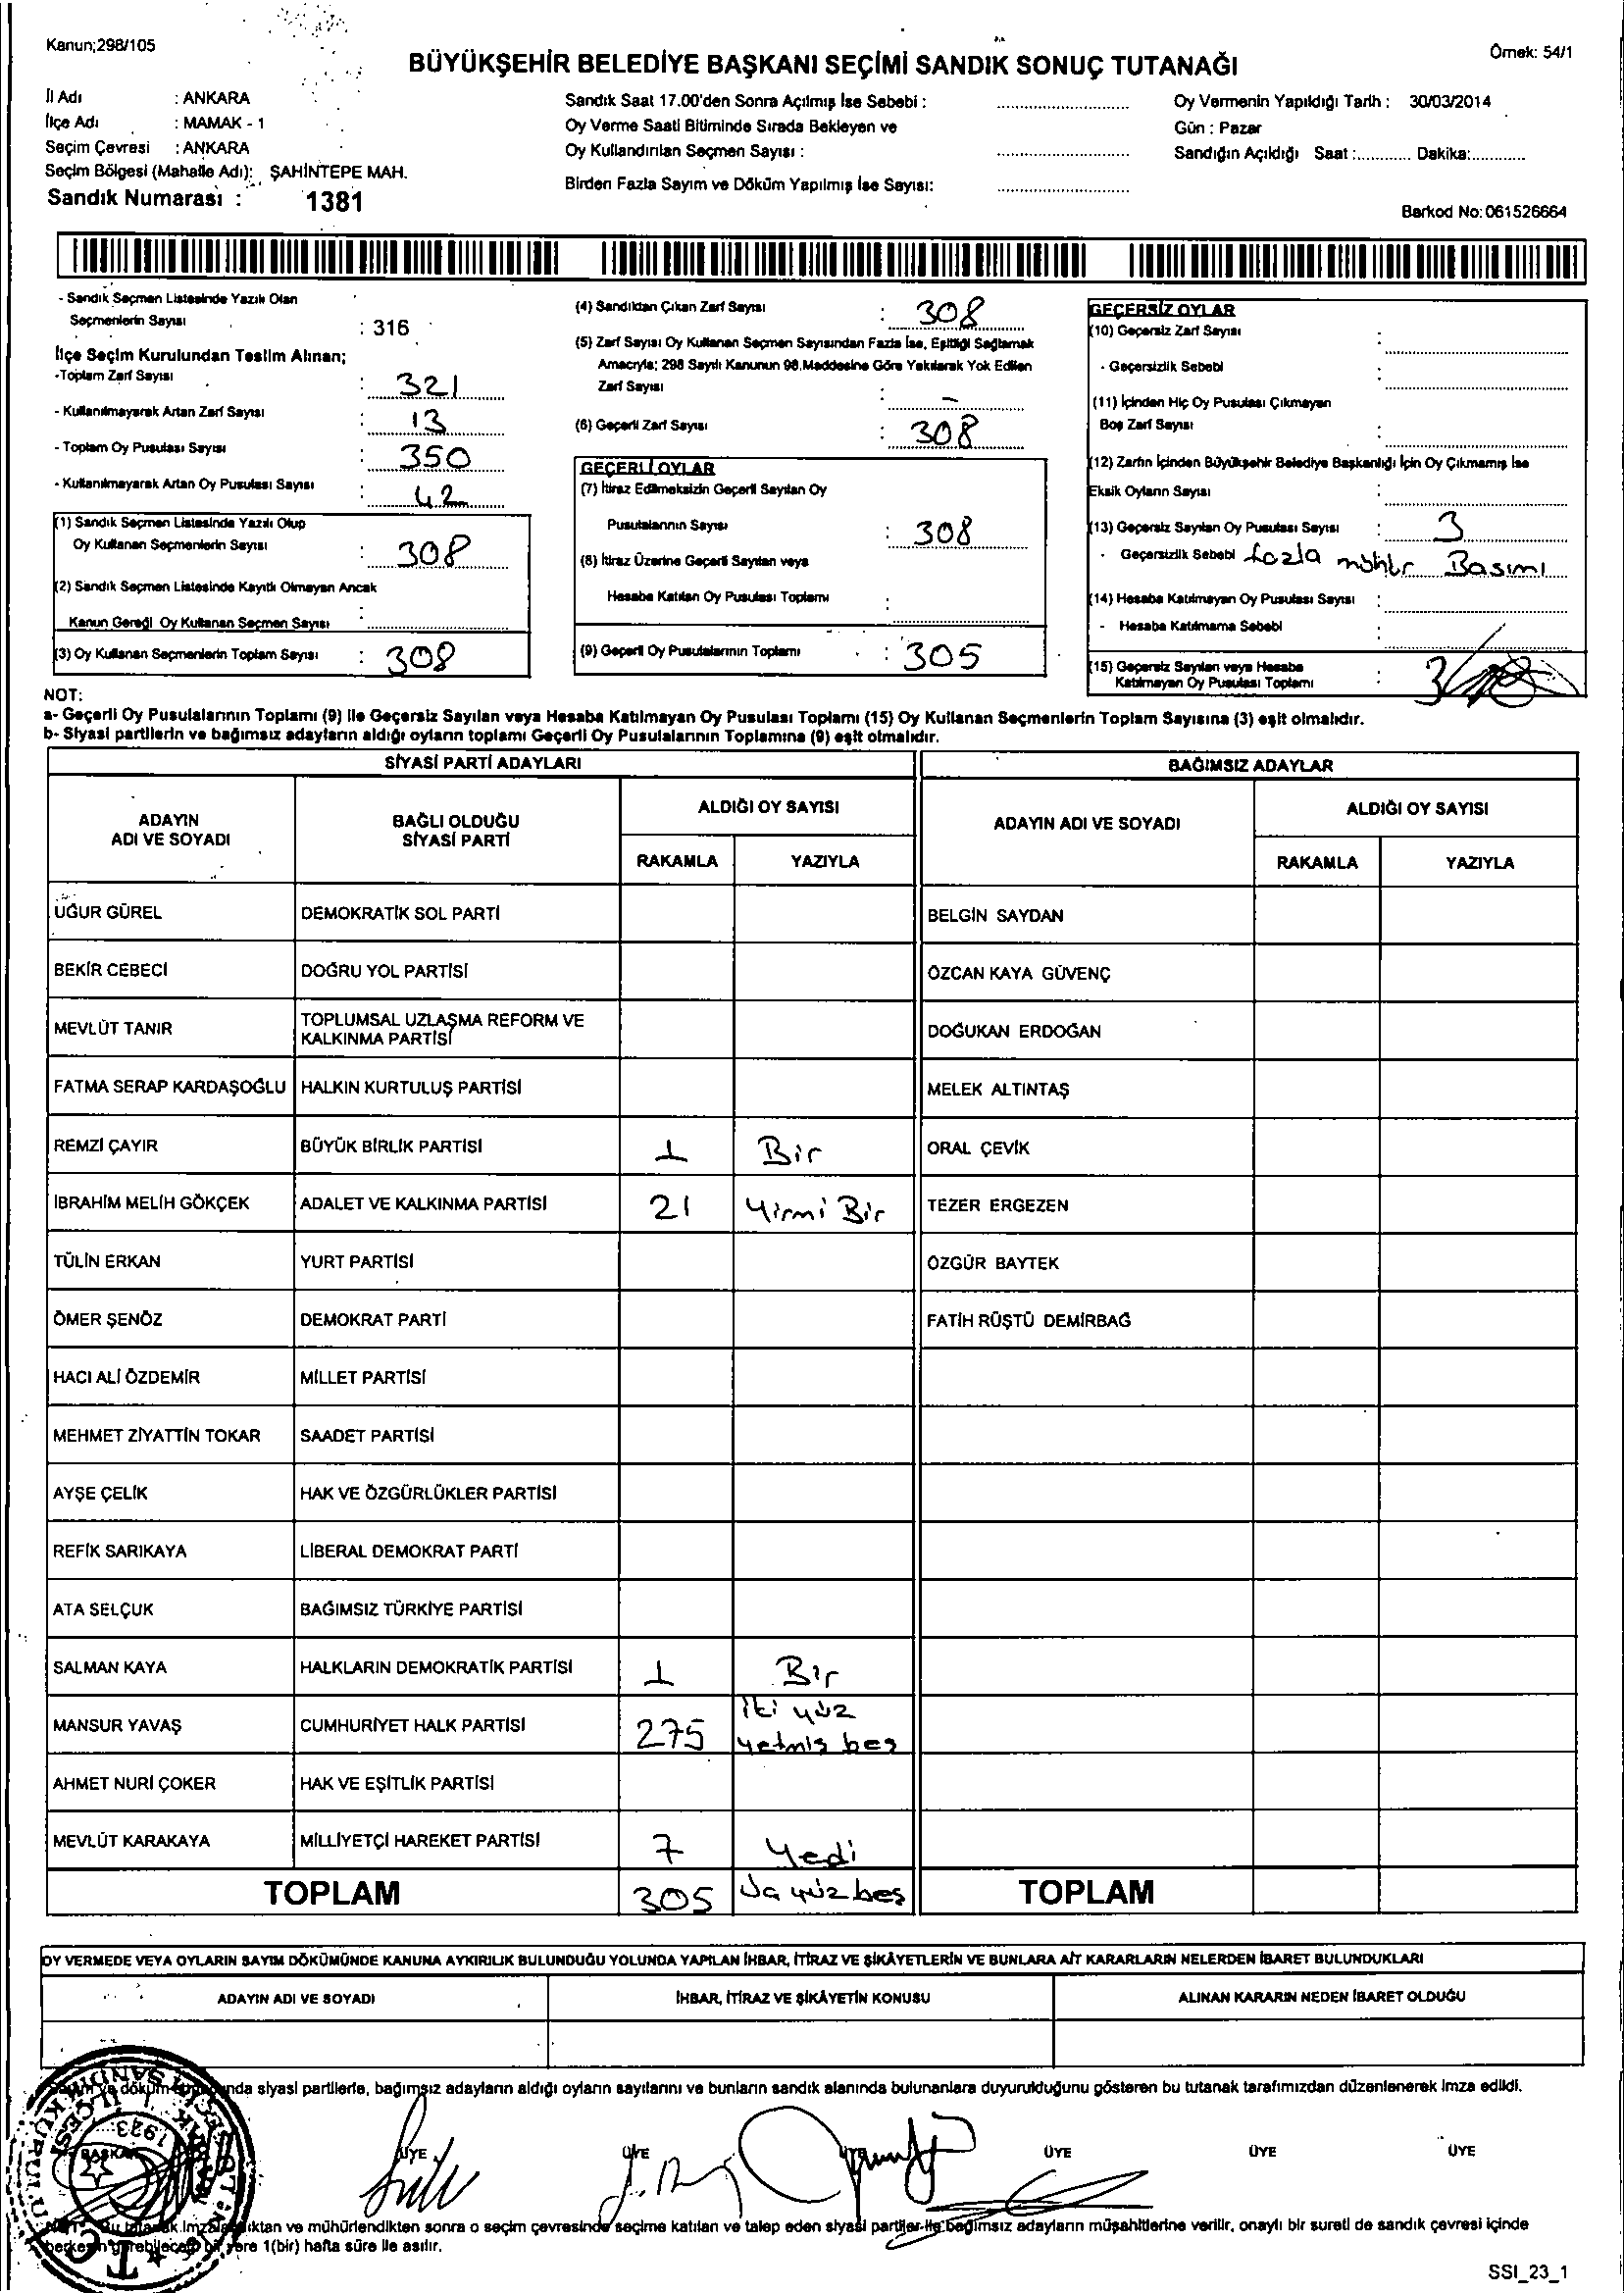 Kanun;298/105
Örnek: 54/1
BÜYÜKŞEHİR BELEDİYE BAŞKANI SEÇİMİ SANDIK SONUÇ TUTANAĞI
İl Adı : ANKARA
İlçe Adı : MAMAK - 1
Seçim Çevresi : ANKARA
Seçim Bölgesi (Mahalle Adı): ŞAHİNTEPE MAH.
Sandık Numarası : 1381
Sandık Saat 17.00'den Sonra Açılmış İse Sebebi :
Oy Verme Saati Bitiminde Sırada Bekleyen ve
Oy Kullandırılan Seçmen Sayısı :
Birden Fazla Sayım ve Döküm Yapılmış İse Sayısı:
Oy Vermenin Yapıldığı Tarih : 30/03/2014
Gün : Pazar
Sandığın Açıldığı Saat :............ Dakika:............
Barkod No: 061526664
- Sandık Seçmen Listesinde Yazılı Olan
Seçmenlerin Sayısı : 316
İlçe Seçim Kurulundan Teslim Alınan;
-Toplam Zarf Sayısı : 321
- Kullanılmayarak Artan Zarf Sayısı : 13
- Toplam Oy Pusulası Sayısı : 350
- Kullanılmayarak Artan Oy Pusulası Sayısı : 42
(1) Sandık Seçmen Listesinde Yazılı Olup
Oy Kullanan Seçmenlerin Sayısı : 308
(2) Sandık Seçmen Listesinde Kayıtlı Olmayan Ancak
Kanun Gereği Oy Kullanan Seçmen Sayısı :
(3) Oy Kullanan Seçmenlerin Toplam Sayısı : 308
(4) Sandıktan Çıkan Zarf Sayısı : 308
(5) Zarf Sayısı Oy Kullanan Seçmen Sayısından Fazla İse, Eşitliği Sağlamak
Amacıyla; 298 Sayılı Kanunun 98.Maddesine Göre Yakılarak Yok Edilen
Zarf Sayısı : -
(6) Geçerli Zarf Sayısı : 308
GEÇERLİ OYLAR
(7) İtiraz Edilmeksizin Geçerli Sayılan Oy
Pusulalarının Sayısı : 308
(8) İtiraz Üzerine Geçerli Sayılan veya
Hesaba Katılan Oy Pusulası Toplamı :
(9) Geçerli Oy Pusulalarının Toplamı : 305
GEÇERSİZ OYLAR
(10) Geçersiz Zarf Sayısı :
- Geçersizlik Sebebi :
(11) İçinden Hiç Oy Pusulası Çıkmayan
Boş Zarf Sayısı :
(12) Zarfın İçinden Büyükşehir Belediye Başkanlığı İçin Oy Çıkmamış İse
Eksik Oyların Sayısı :
(13) Geçersiz Sayılan Oy Pusulası Sayısı : 3
- Geçersizlik Sebebi fazla mühür Basımı
(14) Hesaba Katılmayan Oy Pusulası Sayısı :
- Hesaba Katılmama Sebebi :
(15) Geçersiz Sayılan veya Hesaba
Katılmayan Oy Pusulası Toplamı : 3
NOT:
a- Geçerli Oy Pusulalarının Toplamı (9) ile Geçersiz Sayılan veya Hesaba Katılmayan Oy Pusulası Toplamı (15) Oy Kullanan Seçmenlerin Toplam Sayısına (3) eşit olmalıdır.
b- Siyasi partilerin ve bağımsız adayların aldığı oyların toplamı Geçerli Oy Pusulalarının Toplamına (9) eşit olmalıdır.
SİYASİ PARTİ ADAYLARI BAĞIMSIZ ADAYLAR
ADAYIN ADI VE SOYADI BAĞLI OLDUĞU SİYASİ PARTİ ALDIĞI OY SAYISI ADAYIN ADI VE SOYADI ALDIĞI OY SAYISI
RAKAMLA YAZIYLA RAKAMLA YAZIYLA
UĞUR GÜREL DEMOKRATİK SOL PARTİ BELGİN SAYDAN
BEKİR CEBECİ DOĞRU YOL PARTİSİ ÖZCAN KAYA GÜVENÇ
MEVLÜT TANIR TOPLUMSAL UZLAŞMA REFORM VE KALKINMA PARTİSİ DOĞUKAN ERDOĞAN
FATMA SERAP KARDAŞOĞLU HALKIN KURTULUŞ PARTİSİ MELEK ALTINTAŞ
REMZİ ÇAYIR BÜYÜK BİRLİK PARTİSİ 1 Bir ORAL ÇEVİK
İBRAHİM MELİH GÖKÇEK ADALET VE KALKINMA PARTİSİ 21 Yirmi Bir TEZER ERGEZEN
TÜLİN ERKAN YURT PARTİSİ ÖZGÜR BAYTEK
ÖMER ŞENÖZ DEMOKRAT PARTİ FATİH RÜŞTÜ DEMİRBAĞ
HACI ALİ ÖZDEMİR MİLLET PARTİSİ
MEHMET ZİYATTİN TOKAR SAADET PARTİSİ
AYŞE ÇELİK HAK VE ÖZGÜRLÜKLER PARTİSİ
REFİK SARIKAYA LİBERAL DEMOKRAT PARTİ
ATA SELÇUK BAĞIMSIZ TÜRKİYE PARTİSİ
SALMAN KAYA HALKLARIN DEMOKRATİK PARTİSİ 1 Bir
MANSUR YAVAŞ CUMHURİYET HALK PARTİSİ 275 iki yüz yetmiş beş
AHMET NURİ ÇOKER HAK VE EŞİTLİK PARTİSİ
MEVLÜT KARAKAYA MİLLİYETÇİ HAREKET PARTİSİ 7 Yedi
TOPLAM 305 yüz beş TOPLAM
OY VERMEDE VEYA OYLARIN SAYIM DÖKÜMÜNDE KANUNA AYKIRILIK BULUNDUĞU YOLUNDA YAPILAN İHBAR, İTİRAZ VE ŞİKÂYETLERİN VE BUNLARA AİT KARARLARIN NELERDEN İBARET BULUNDUKLARI
ADAYIN ADI VE SOYADI İHBAR, İTİRAZ VE ŞİKÂYETİN KONUSU ALINAN KARARIN NEDEN İBARET OLDUĞU
siyasi partilerle, bağımsız adayların aldığı oyların sayılarını ve bunların sandık alanında bulunanlara duyurulduğunu gösteren bu tutanak tarafımızdan düzenlenerek imza edildi.
BAŞKAN ÜYE ÜYE ÜYE ÜYE ÜYE ÜYE
ve mühürlendikten sonra o seçim çevresinde seçime katılan ve talep eden siyasi partiler ile bağımsız adayların müşahitlerine verilir, onaylı bir sureti de sandık çevresi içinde
yere 1(bir) hafta süre ile asılır.
1923
T.C.
SSI_23_1